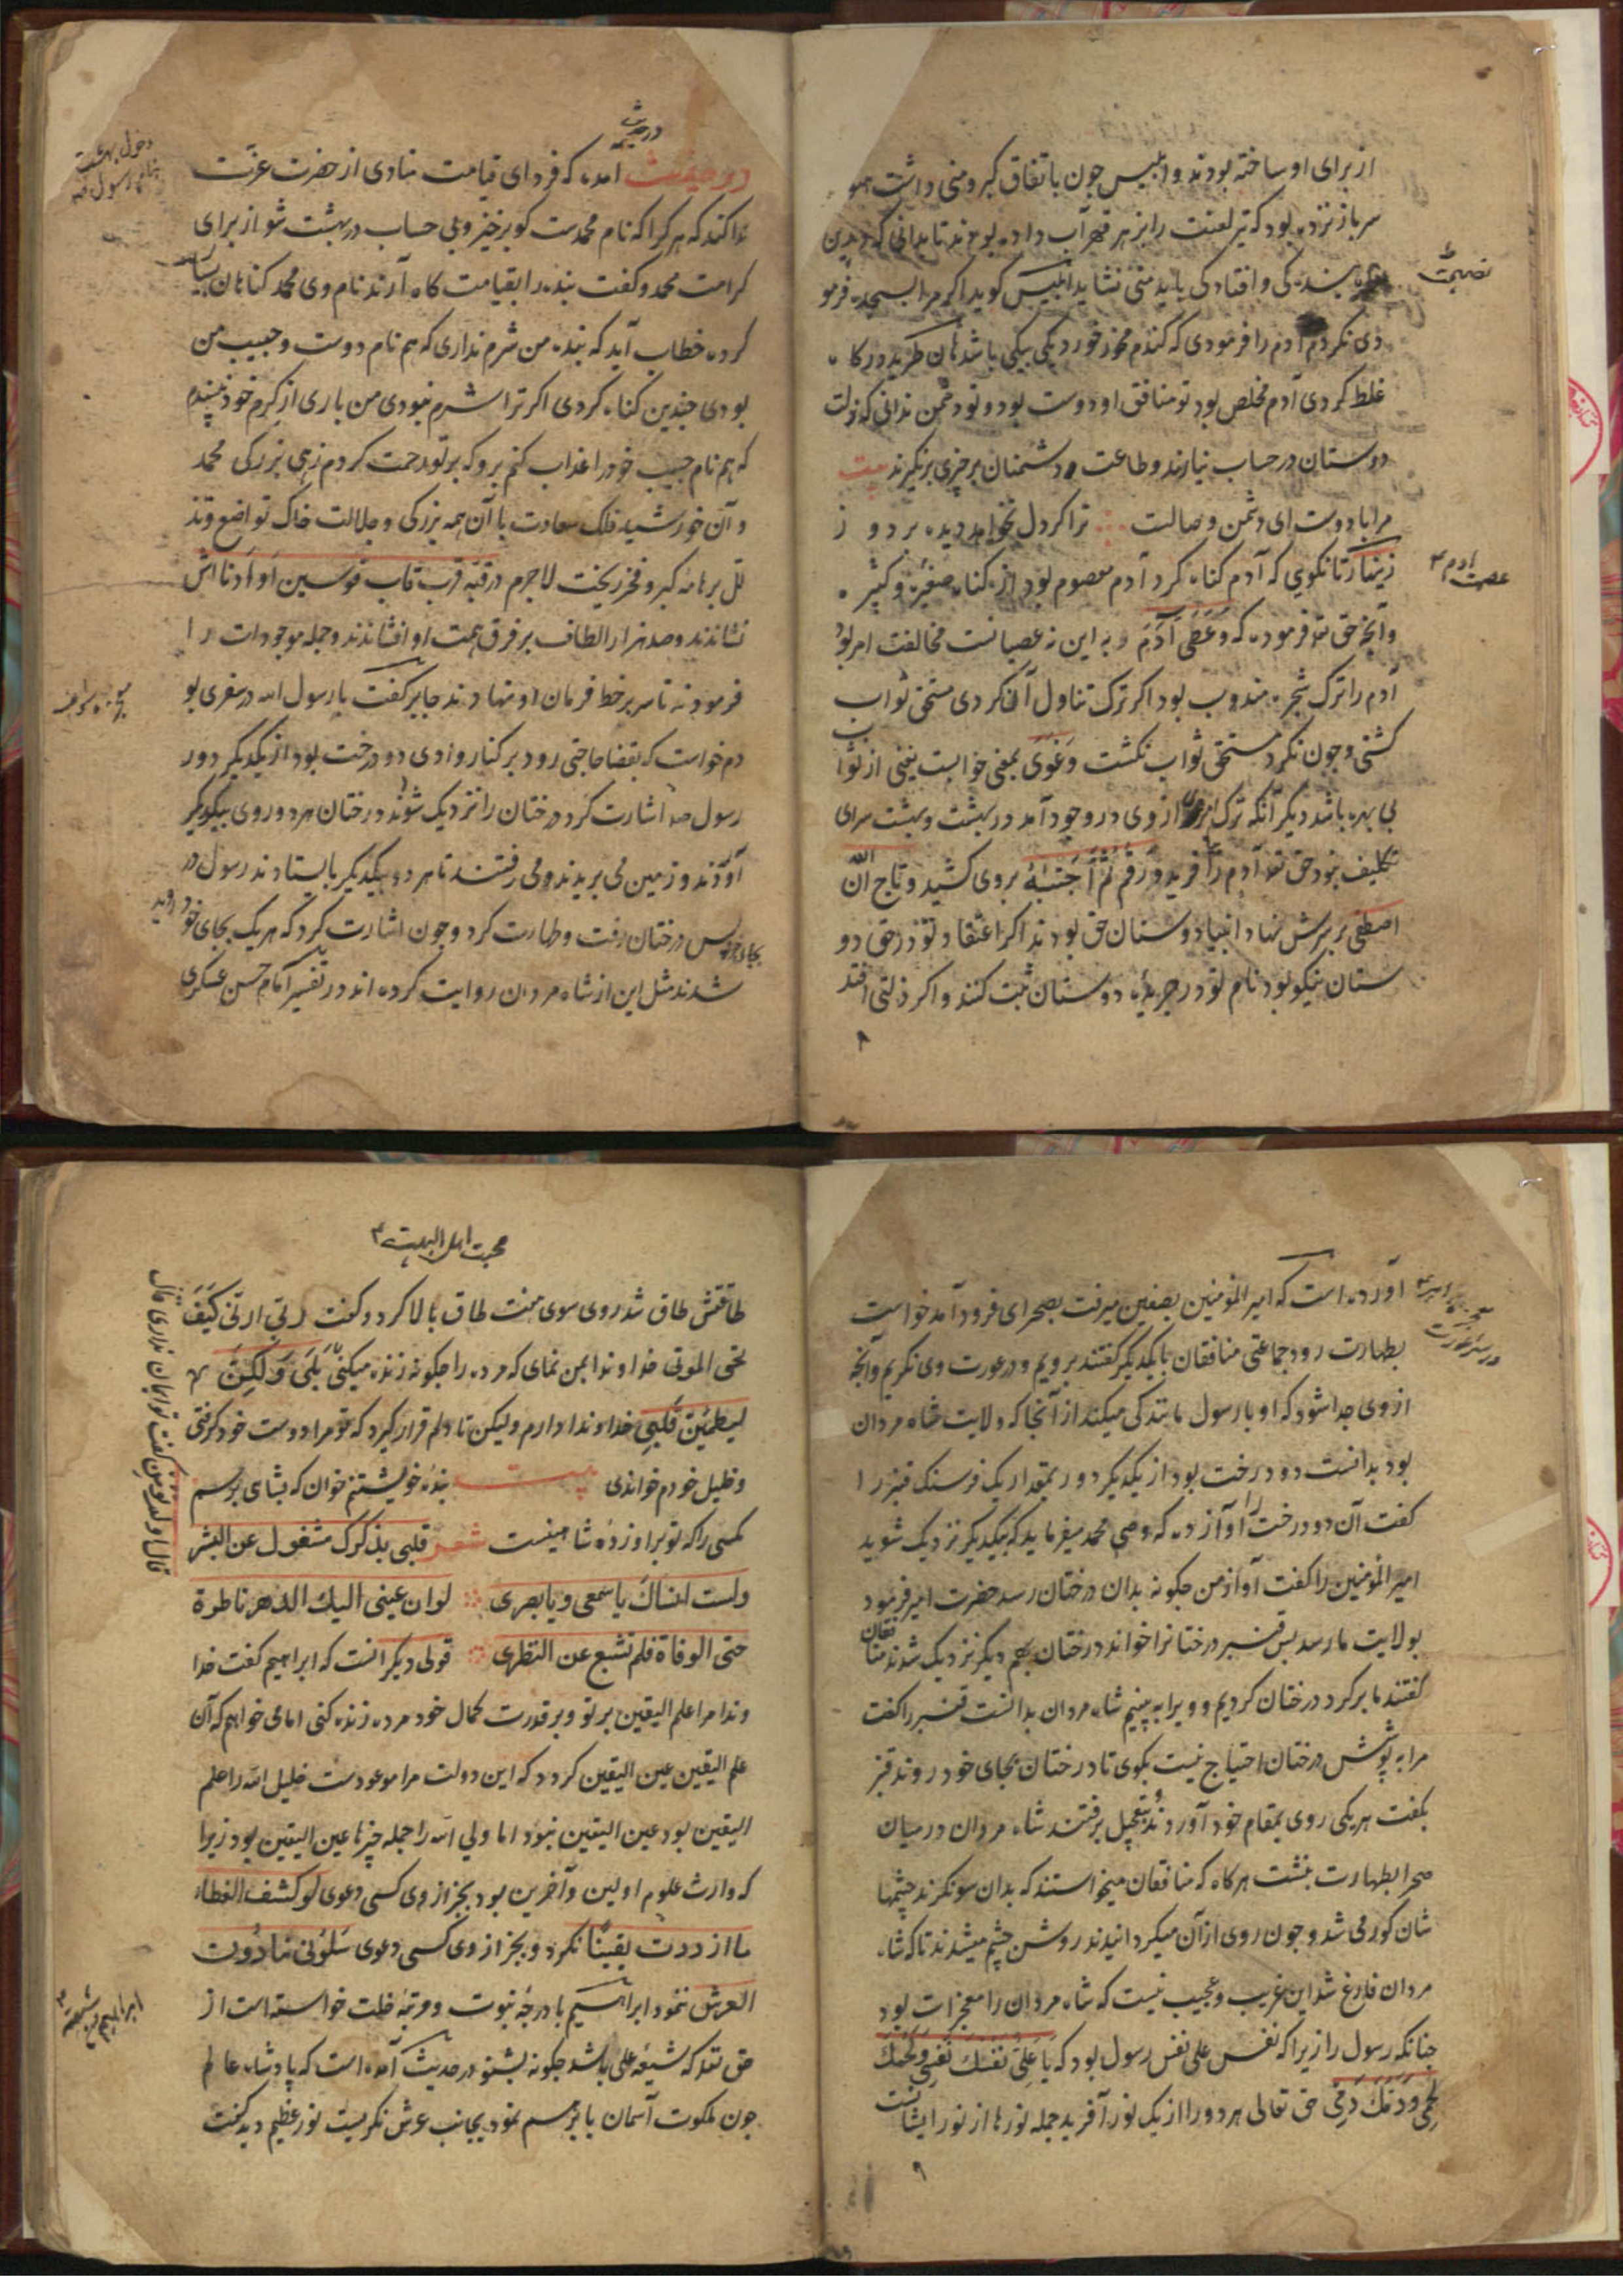 از برای او ساخته بودند و ابلیس چون باتفاق کبر و منی داشت هنو
سر باز نزده بود که تیر لعنت را بزهر قهر آب داده بودند تا بدانی که درین
بندکی و افتادکی باید منی نشاید ابلیس کوید اکر مرا بسجده فرمو
نصیحت
دی نکردم آدم را فرمودی که کندم مخور خورد یکی بیکی باشد هان
غلط کردی آدم مخلص بود تو منافق او دوست بود و تو دشمن ندانی که زلت
دوستان در حساب نیارند و طاعت دشمنان بر چیزی برنکیرند بیت
مرا با دوست ای دشمن وصالت ترا کر دل نخواهد دیده بر دو ز
زینهار تا نکویی که آدم کناه کرد آدم معصوم بود از کناه صغیره و کبیر ه
عصمت آدم ع
وآنچه حق تع فرموده که وَعَصَی آدَمُ و به این نه عصیانست مخالفت امر بود
آدم را ترک شجره مندوب بود اکر ترک تناول آن کردی مستحق ثواب
کشتی و چون نکرد مستحق ثواب نکشت وَغَوَی بمعنی خوابست یعنی از ثوا
ب
بی بهره باشد دیکر آنکه ترک امر از وی در وجود آمد در بهشت و بهشت سرای
تکلیف نبود حق تع آدم را آفرید و رقم ثُمَّ اجْتَبَاهُ بر وی کشید و تاج اِنَّ اللّٰه
اصطفی بر سرش نهاد انبیا دوستان حق بودند اکر اعتقاد تو در حق دو
ستان نیکو بود نام تو در جریدهٔ دوستان ثبت کنند و اکر زلتی افتد
۸
در حدیث
در حدیث آمده که فردای قیامت منادی از حضرت عزّت
دخول بهشت
بنام رسول ص
ندا کند که هر کرا که نام محمدست کو برخیز و بی حساب در بهشت شو از برای
کرامت محمد و کفت بنده را بقیامت کاه آرند نام وی محمد کناهان بسیار
کرده خطاب آید که بنده من شرم نداری که هم نام دوست و حبیب من
بودی چندین کناه کردی اکر ترا شرم نبودی من باری از کرم خود نپسندم
که هم نام حبیب خود را عذاب کنم برو که بر تو رحمت کردم زهی بزرکی محمد
و آن خورشید فلک سعادت با آن همه بزرکی و جلالت خاک تواضع و تذ
لل بر هامهٔ کبر و فخر ریخت لاجرم در قبّه قرب قاب قوسین او ادنا اش
نشاندند و صد هزار الطاف بر فرق همت او افشاندند و جمله موجودات را
فرمودند تا سر بر خط فرمان او نهادند جابر کفت با رسول الله در سفری بو
معجزه رسول ص
دم خواست که بقضا حاجتی رود بر کنار وادی دو درخت بود از یکدیکر دور
رسول ص اشارت کرد درختان را نزدیک شوند درختان هر دو روی بیکدیکر
آوردند و زمین می بریدند و می رفتند تا هر دو بیکدیکر بایستادند رسول در
پس درختان رفت و طهارت کرد و چون اشارت کرد که هر یک بجای خود روید
بجای خود
شدند مثل این از شاه مردان روایت کرده اند در تفسیر امام حسن عسکری
آورده است که امیر المؤمنین بصفین میرفت بصحرای فرود آمد خواست
معجزه امیر ع
در ستر عورت
بطهارت رود جماعتی منافقان با یکدیکر کفتند برویم و در عورت وی نکریم وآنچه
از وی جدا شود که او با رسول مانندکی میکند از آنجا که ولایت شاه مردان
بود بدانست دو درخت بود از یکدیکر دور بمقدار یک فرسنک قنبر را
کفت آن دو درخت را آواز ده که وصی محمد میفرماید که بیکدیکر نزدیک شوید
امیر المؤمنین را کفت آواز من چکونه بدان درختان رسد حضرت امیر فرمود
بولایت ما رسد پس قنبر درختانرا خواند درختان بهم دیکر نزدیک شدند منا
فقان
کفتند ما بر کرد درختان کردیم و ویرا به بینیم شاه مردان بدانست قنبر را کفت
مرا به پوشش درختان احتیاج نیست بکوی تا درختان بجای خود روند قنبر
بکفت هر یکی روی بمقام خود آوردند بتعجیل برفتند شاه مردان در میان
صحرا بطهارت بنشست هر کاه که منافقان میخواستند که بدان سو نکرند چشمها
شان کور می شد و چون روی از آن میکردانیدند روشن چشم میشدند تا که شاه
مردان فارغ شد این غریب و عجیب نیست که شاه مردان را معجزات بود
چنانکه رسول را زیرا که نفس علی نفس رسول بود که یَا عَلِیُّ نَفْسُكَ نَفْسِی وَلَحْمُكَ
لَحْمِی وَدَمُكَ دَمِی حق تعالی هر دو را از یک نور آفرید جمله نورها از نور ایشانست
۹
محبت اهل البیت ع
طاقتش طاق شد روی سوی هفت طاق بالا کرد و کفت ربّی ارنی کَیْفَ
تحی الموتی خداوندا بمن نمای که مرده را چکونه زنده میکنی بَلَی وَلَكِنْ
قال اولم تؤمن کفت تو ایمان نداری قال
لیطمئن قلبی خداوندا دارم ولیکن تا دلم قرار کیرد که تو مرا دوست خود کرفتی
و خلیل خودم خواندی بیت بندهٔ خویشتنم خوان که بشاهی برسم
کسی را که تو پر او زدهٔ شاهینست شعر قلبی بذکرک مشغول عن البشر
ولست انساك یا سمعی ویا بصری لو ان عینی الیك الدهر ناظرة
حتی الوفاة فلم تشبع عن النظری قولی دیکر آنست که ابراهیم کفت خدا
وندا مرا علم الیقین بر تو و بر قدرت کمال خود مرده زنده کنی اما می خواهم که آن
علم الیقین عین الیقین کردد که این دولت مرا موعودست خلیل الله را علم
الیقین بود عین الیقین نبود اما ولی الله را جمله چیزها عین الیقین بود زیرا
که وارث علوم اولین و آخرین بود بجز از وی کسی دعوی لو کشف الغطاء
ما ازددت یقینًا نکرد و بجز از وی کسی دعوی سَلُونی مادُون
العرش ننمود ابراهیم با درجهٔ نبوت و مرتبهٔ خلت خواسته است از
ابراهیم ع شیعه
حق تعد که شیعهٔ علی باشد چکونه بشنو در حدیث آمده است که پادشاه عالم
چون ملکوت آسمان بابرهیم نمود بجانب عرش نکریست نور عظیم دید کفت